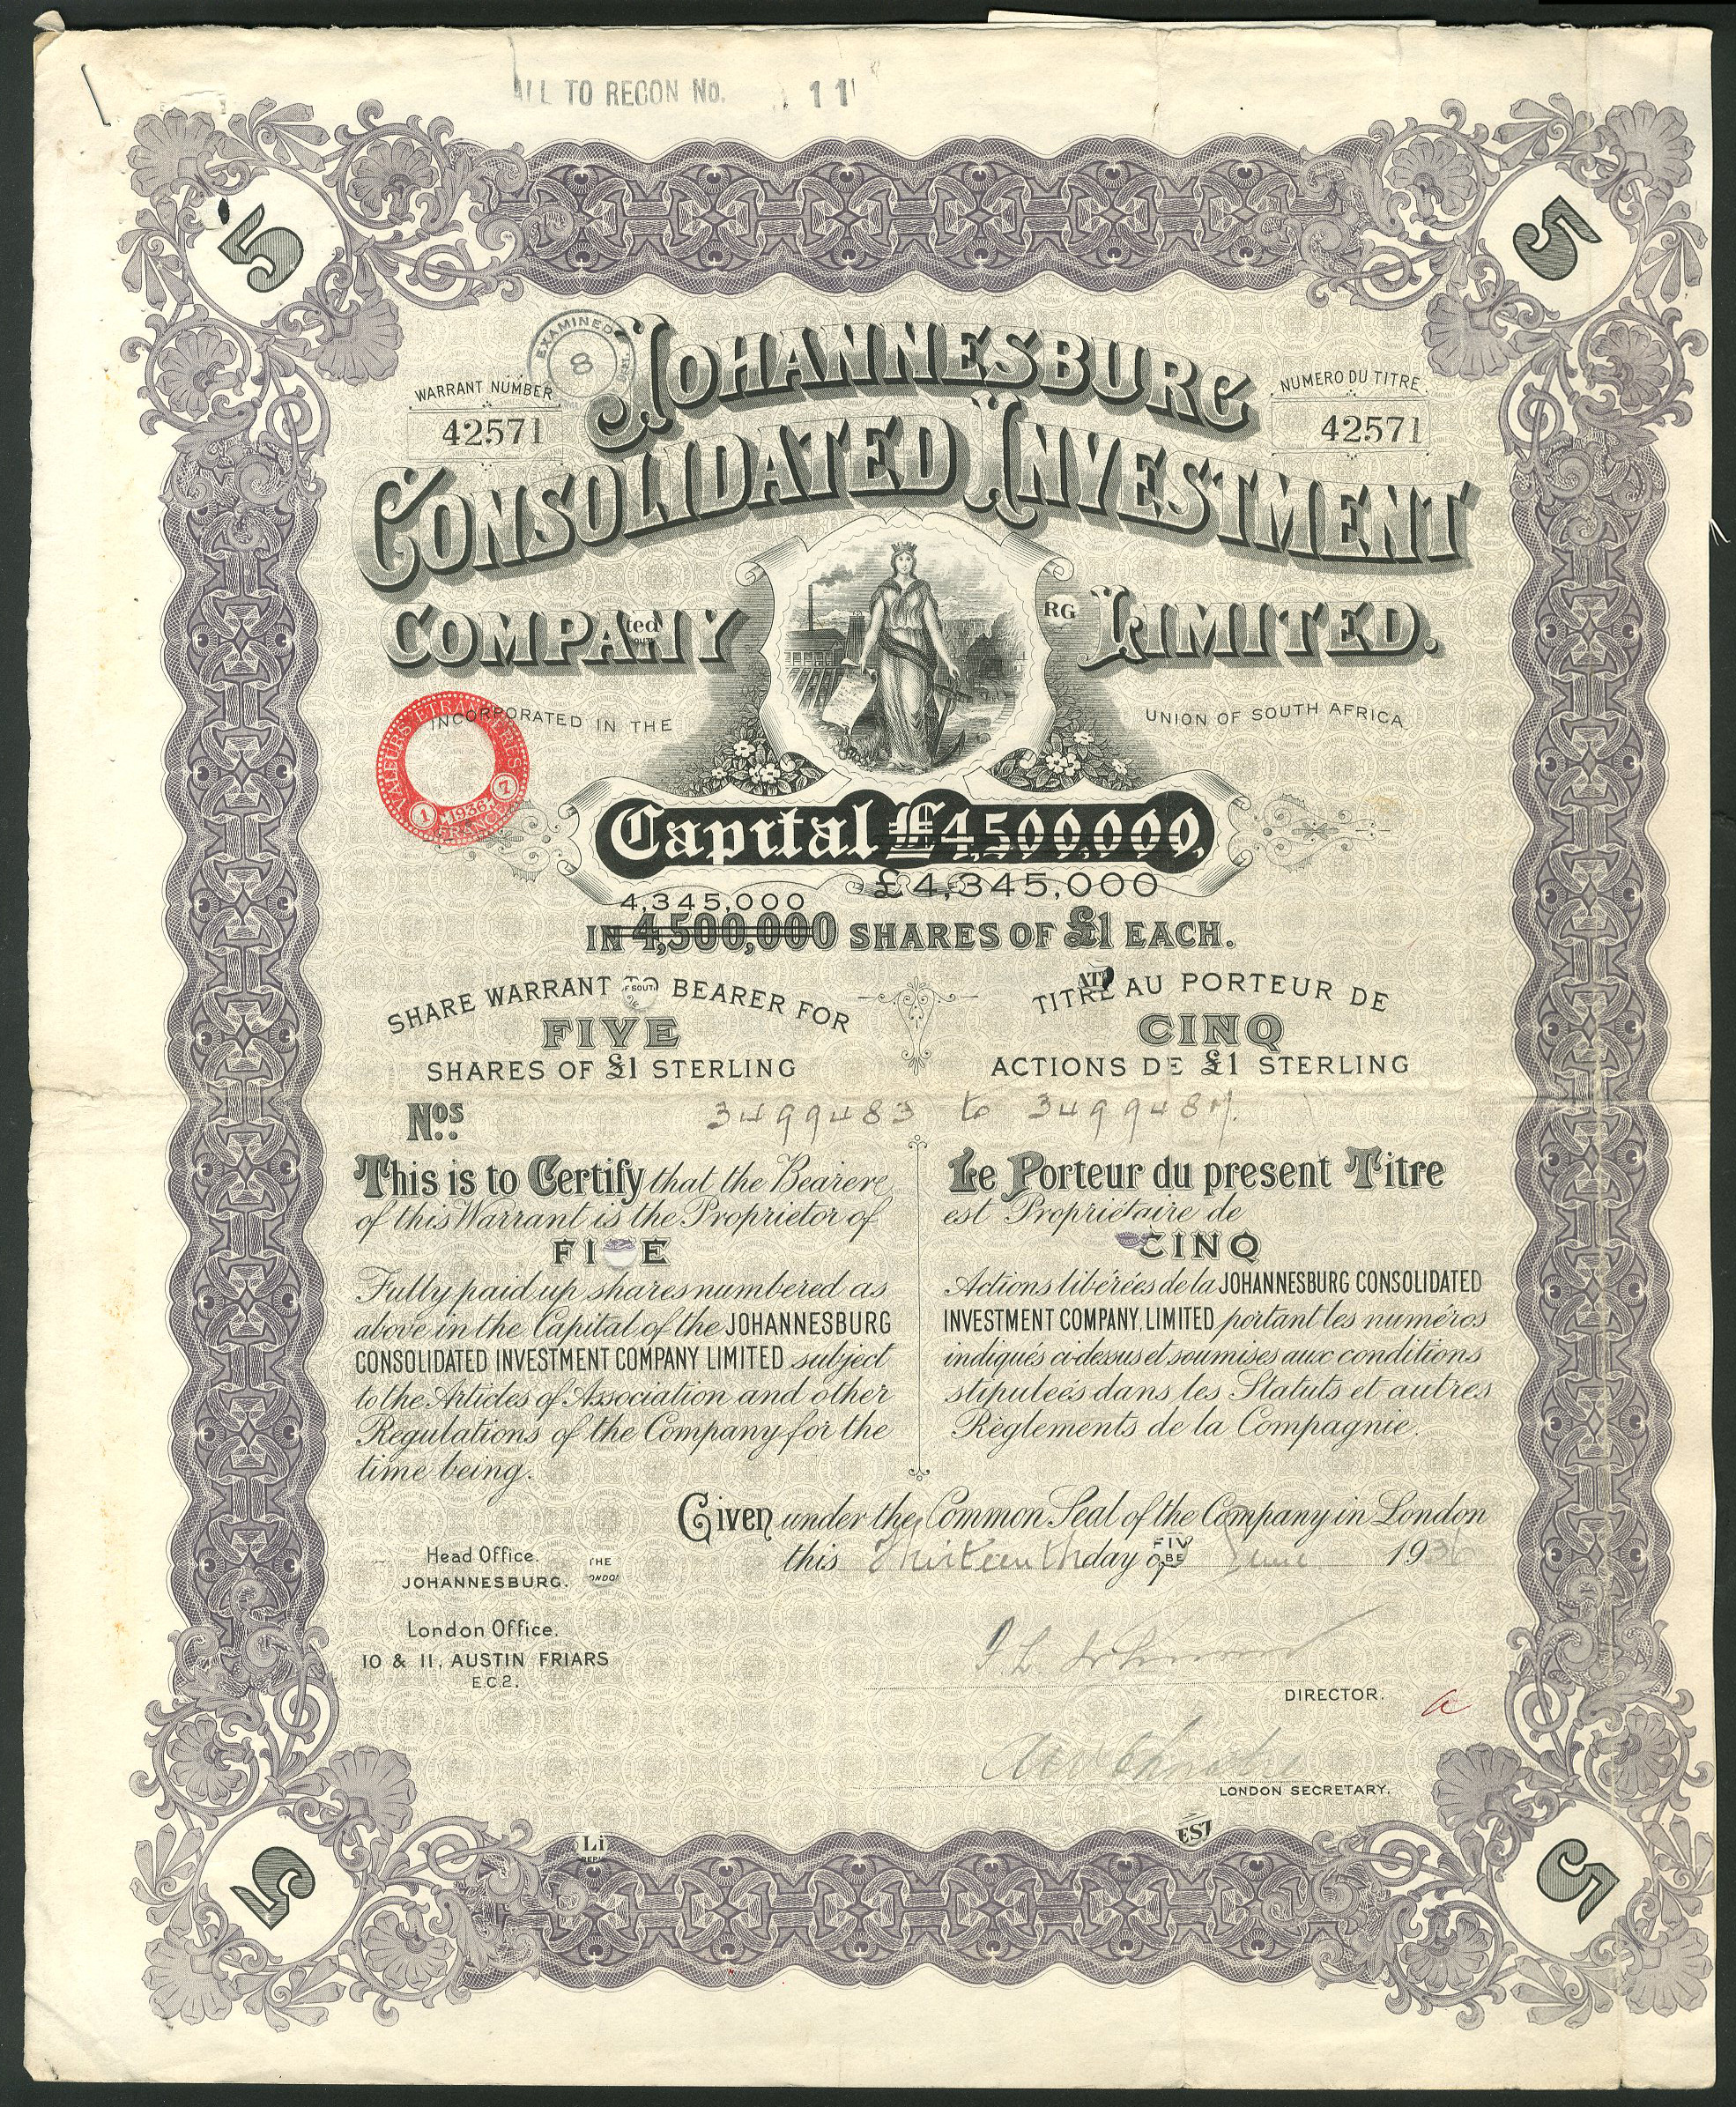 ALL TO RECON No. 11
5 5
EXAMINED
8
WARRANT NUMBER
42571
NUMERO DU TITRE
42571
JOHANNESBURG
CONSOLIDATED INVESTMENT
COMPANY LIMITED.
ted
RG
INCORPORATED IN THE UNION OF SOUTH AFRICA
VALEURS ETRANGERES
1 1936 7
FRANCE
Capital £4,500,000,
£4,345,000
4,345,000
IN 4,500,000 SHARES OF £1 EACH.
SHARE WARRANT TO BEARER FOR
FIVE
SHARES OF £1 STERLING
TITRE AU PORTEUR DE
CINQ
ACTIONS DE £1 STERLING
Nos 3499483 to 3499487.
This is to Certify that the Bearer
of this Warrant is the Proprietor of
FI E
Fully paid up shares numbered as
above in the Capital of the JOHANNESBURG
CONSOLIDATED INVESTMENT COMPANY LIMITED subject
to the Articles of Association and other
Regulations of the Company for the
time being.
Le Porteur du present Titre
est Propriétaire de
CINQ
Actions libérées de la JOHANNESBURG CONSOLIDATED
INVESTMENT COMPANY, LIMITED portant les numéros
indiqués ci-dessus et soumises aux conditions
stipuleés dans les Statuts et autres
Règlements de la Compagnie.
Given under the Common Seal of the Company in London
this Thirteenth day of June 1936
FIV
BE
Head Office.
JOHANNESBURG.
THE
London Office.
10 & 11, AUSTIN FRIARS
E.C.2.
DIRECTOR.
LONDON SECRETARY.
Li
EST
5 5